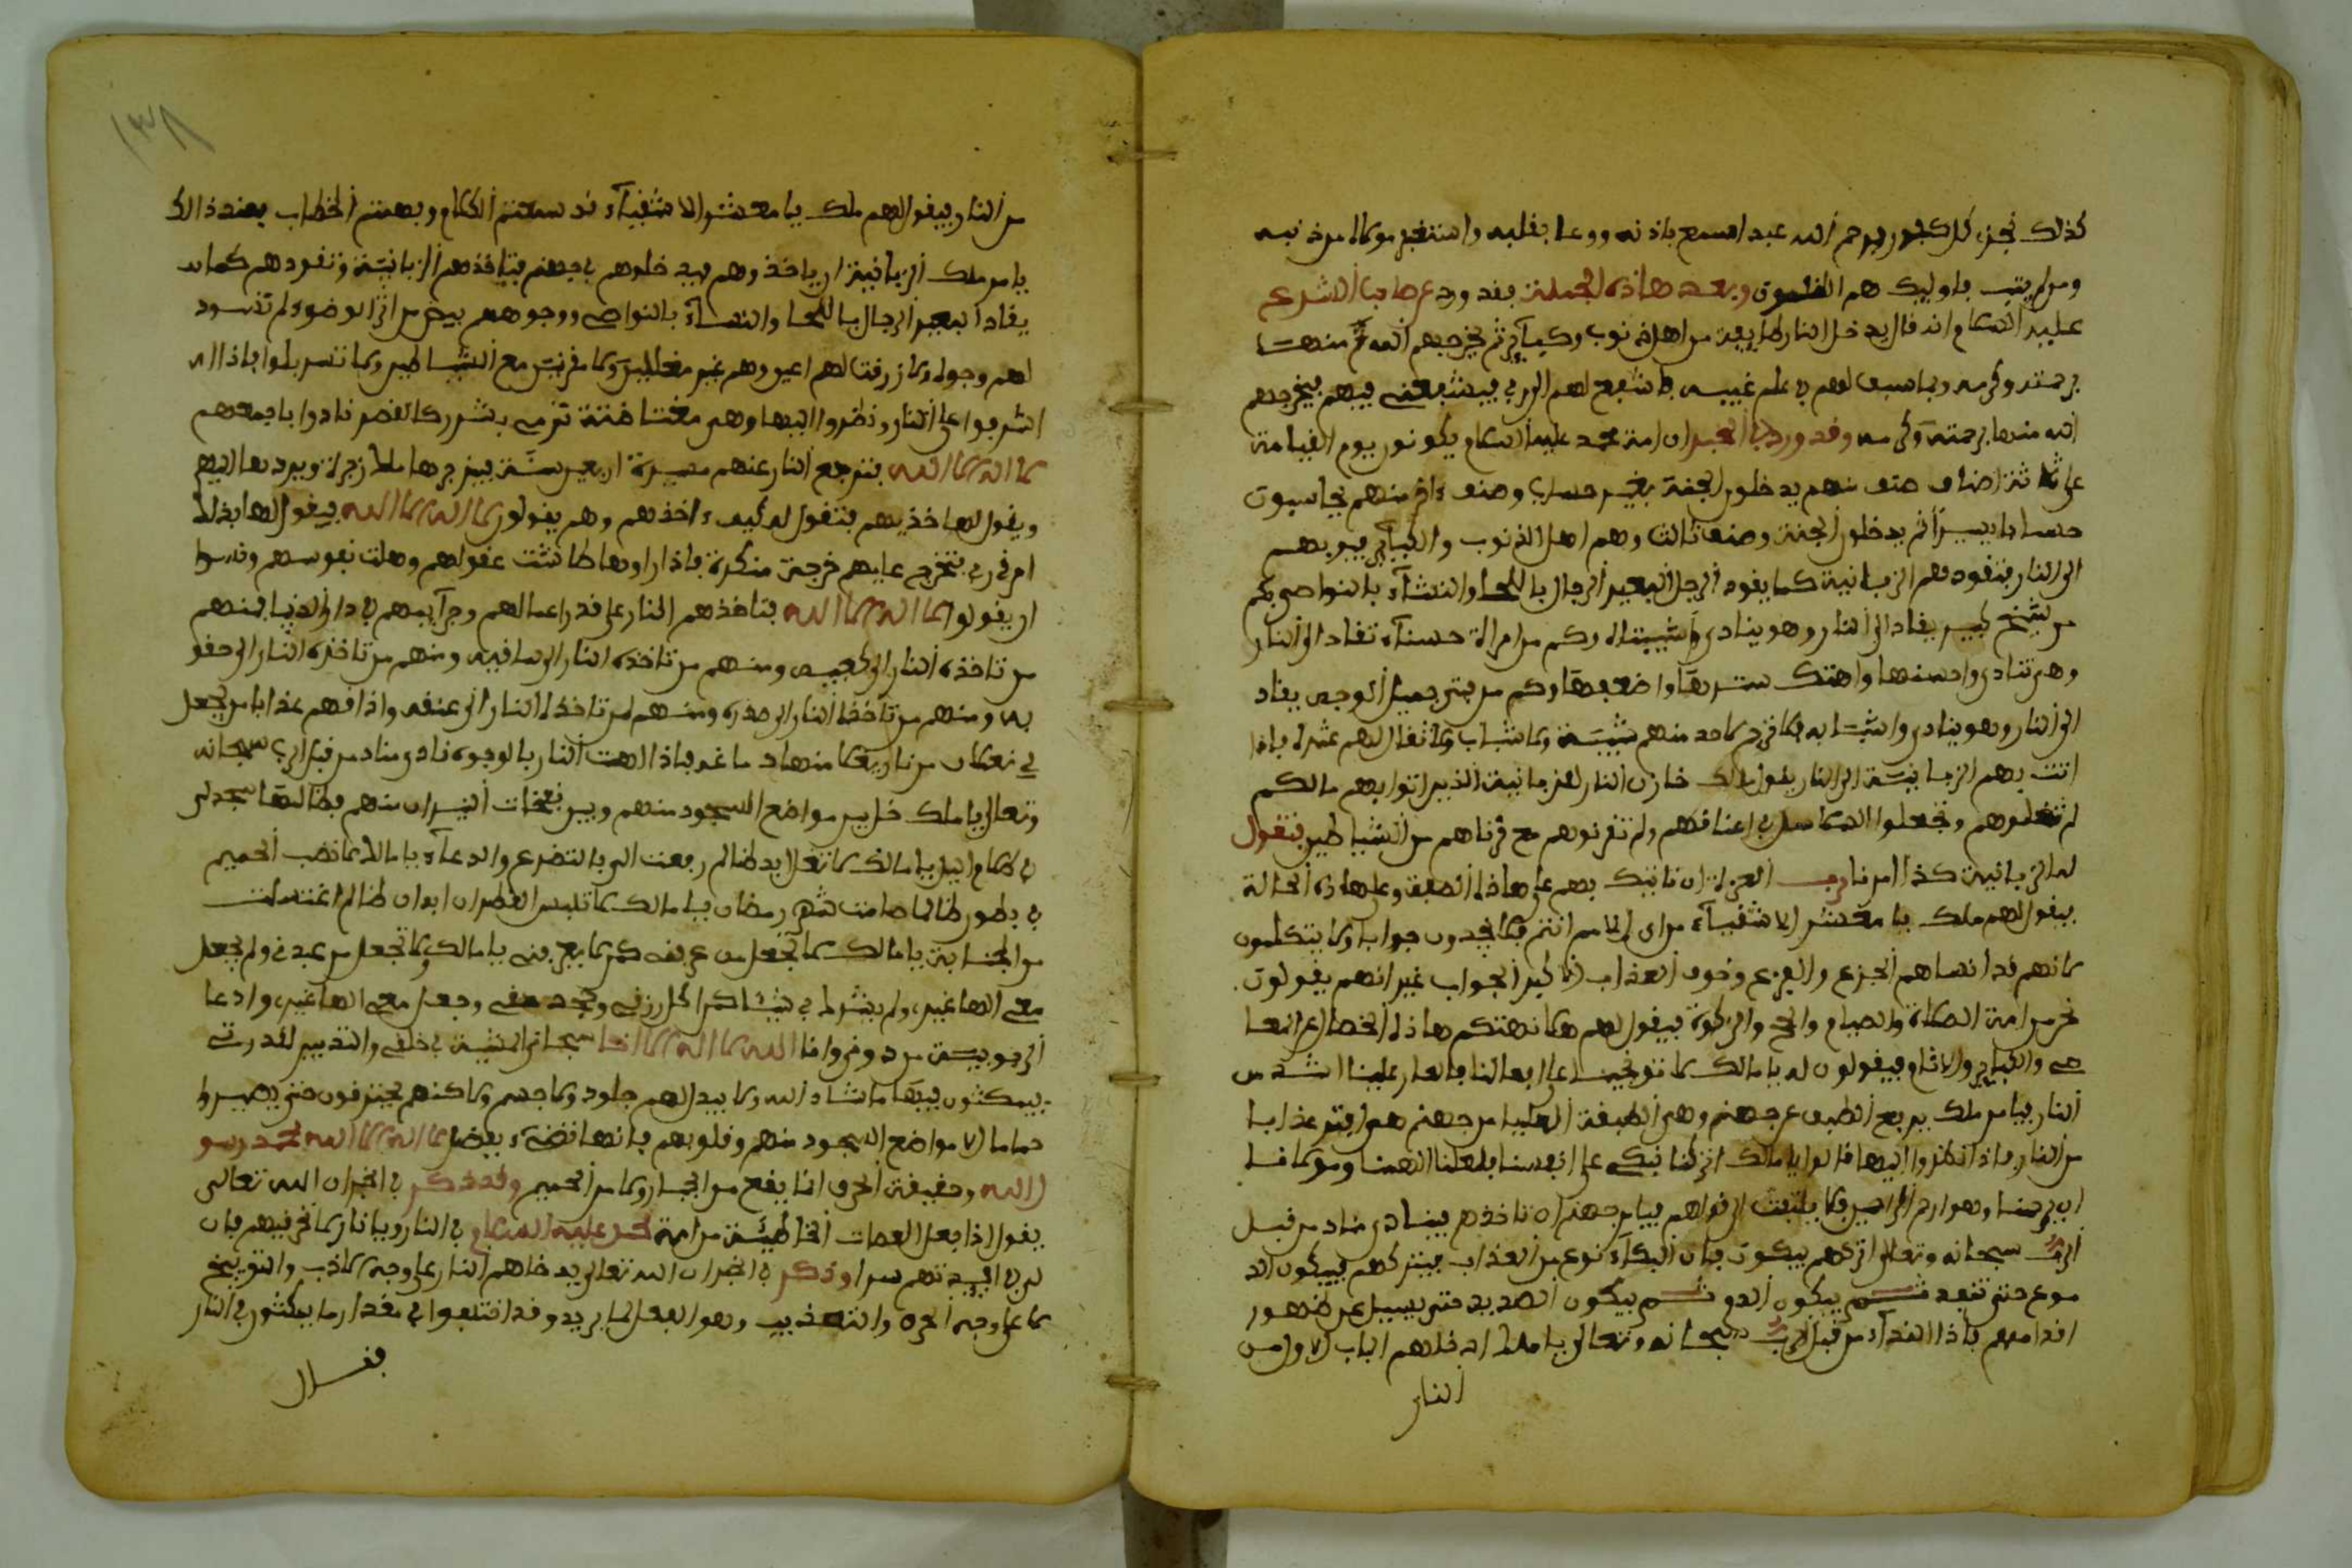 كذلك نجزي كل كفور يرحم الله عبدا سمع باذنه ووعا بقلبه واستغفر مولاه من ذنبه
ومن لم يتب فاوليك هم الظلمون وبعد هاذه الجملة فقد ورد عن صاحب الشرع
عليه السلام انه قال يدخل النار طايفة من اهل ذنوب وكبآير ثم يخرجهم الله منها
برحمته وكرمه وبما سبق لهم في علم غيبه بشفيع لهم الى ربي فيشفعني فيهم فيخرجهم
الله منها برحمته وكرمه وقد ورد في الخبر ان امة محمد عليه السلام يكونون يوم القيامة
على ثلاثة اصناف صنف منهم يدخلون الجنة بغير حساب وصنف ءاخر منهم يحاسبون
حسابا يسيرا ثم يدخلون الجنة وصنف ثالث وهم اهل الذنوب والكبآير فيوبهم
الى النار فتقودهم الزبانية كما يقود الرجل البعير الرجال باللحا والنسآء بالنواصي فكم
من شيخ كبير يقاد الى النار وهو ينادي واشيبتاه وكم من امراة حسنآء تقاد الى النار
وهي تنادي واحسنها واهتك سترها واضعفها وكم من فتى جميل الوجه يقاد
الى النار وهو ينادي واشبابه فلا يرحم لاحد منهم شيبة ولا شباب ولا تقال لهم عثرة فاذا
اتت بهم الزبانية الى النار يقول مالك خازن النار للزبانية الذين اتوا بهم مالكم
لم تغلوهم وتجعلوا السلاسل في اعناقهم ولم تقرنوهم مع قرناهم من الشياطين فتقول
له الزبانية كذا امرنا رب العزة ان ناتيك بهم على هاذه الصفة وعلى هاذه الحالة
فيقول لهم ملك يا معشر الاشقيآء من اي الامم انتم فلا يجدون جوابا ولا يتكلمون
لانهم قد انساهم الجزع والفزع وخوف العذاب ذكر الجواب غير انهم يقولون
نحن من امة الصلاة والصيام والحج والزكوة فيقول لهم هلا نهتكم هاذه الخصال عن المعا
صي والكباير والاثام فيقولون له يا مالك لا توبخنا على افعالنا فالعار علينا اشد من
النار فيامر ملك برفع الطبق عن جهنم وهي الطبقة العليا من جهنم هي افتر عذابا
من النار فاذا نظروا اليها قالوا يا مالك اتركنا نبكي على انفسنا فلعل الاهنا ومولانا
ان يرحمنا وهو ارحم الراحمين فلا يلتفت الى قولهم فيامر جهنم ان تاخذهم فينادي مناد من قبل
الرب سبحانه وتعالى اتركهم يبكون فان البكآء نوع من العذاب فيتركهم فيبكون الد
موع حتى تنفد ثم يبكون الدم ثم يبكون الصديد حتى يسيل على ظهور
اقدامهم فاذا الندآء من قبل الرب سبحانه وتعالى يا ملك ادخلهم الباب الاول من
النار
١٣٨
من النار فيقول لهم ملك يا معشر الاشقيآء قد سمعتم الكلام وفهمتم الخطاب فعند ذالك
يامر ملك الزبانية ان ياخذوهم فيدخلوهم في جهنم فتاخذهم الزبانية وتقودهم كما
يقاد البعير الرجال باللحا والنسآء بالنواصي ووجوههم بيض من اثر الوضوء لم تسود
لهم وجوه ولا زرقت لهم اعين وهم غير مغللين ولا مقرنين مع الشياطين ولا تسربلوا فاذا
اشرفوا على النار ونظروا اليها وهي مغتاضة ترمي بشرر كالقصر نادوا باجمعهم
لا اله الا الله فترجع النار عنهم مسيرة اربعين سنة فيزجرها ملك زجرة ويردها اليهم
ويقول لها خذيهم فتقول له كيف ءاخذهم وهم يقولون لا اله الا الله فيقول لها بذلك
امر ربي فتخرج عليهم خرجة منكرة فاذا راوها طاشت عقولهم وهلت نفوسهم ونسوا
ان يقولوا لا اله الا الله فتاخذهم النار على قدر اعمالهم وجرآيمهم في دار الدنيا فمنهم
من تاخذه النار الى كعبيه ومنهم من تاخذه النار الى ساقيه ومنهم من تاخذه النار الى حقو
يه ومنهم من تاخذه النار الى صدره ومنهم من تاخذه النار الى عنقه واذاقهم عذابا من يجعل
في نعلان من نار يغلا منها دماغه فاذا الهبت النار بالوجوه نادى مناد من قبل الرب سبحانه
وتعالى يا ملك خل بين مواضع السجود منهم وبين نفحات النيران منهم فطالما سجد لي
في ظلام اليل يا مالك لا تغل ايد طالما رفعت الي بالتضرع والدعآء يا مالك لا تصب الحميم
في بطون طالما صامت شهر رمضان يا مالك لا تلبس القطران ابدان طالما اغتسلت
من الجنابة يا مالك لا تجعل من عرفني كمن لا يعرفني يا مالك ولا تجعل من عبدني ولم يجعل
معي الها غيري ولم يشرك بي شيئا كمن اكل رزقي وجحد حقي وجعل معي الها غيري وادعا
الربوبية من دوني وانا الله لا اله الا انا سبحاني المشية في خلقي والتدبير لقدرتي
فيمكثون فيها ما شاء الله ولا يبدل لهم جلود ولا جسم ولاكنهم يحترقون حتى يصيروا
حماما الا مواضع السجود منهم وقلوبهم فانها تضيء بفضل لا اله الا الله محمد رسو
ل الله وحقيقة الحرق انما يقع من الجمار ولا من الحميم وقد ذكر في الخبر ان الله تعالى
يقول اذا جعل العصات الخاطئة من امة محمد عليه السلام في النار ويا نار لا تحرقيهم فان
لي في افيدتهم سرا وذكر في الخبر ان الله تعالى يدخلهم النار على وجه الادب والتوبيخ
لا على وجه الحرق والتعذيب وهو الفعال لما يريد وقد اختلفوا في مقدار ما يمكثون في النار
فقال